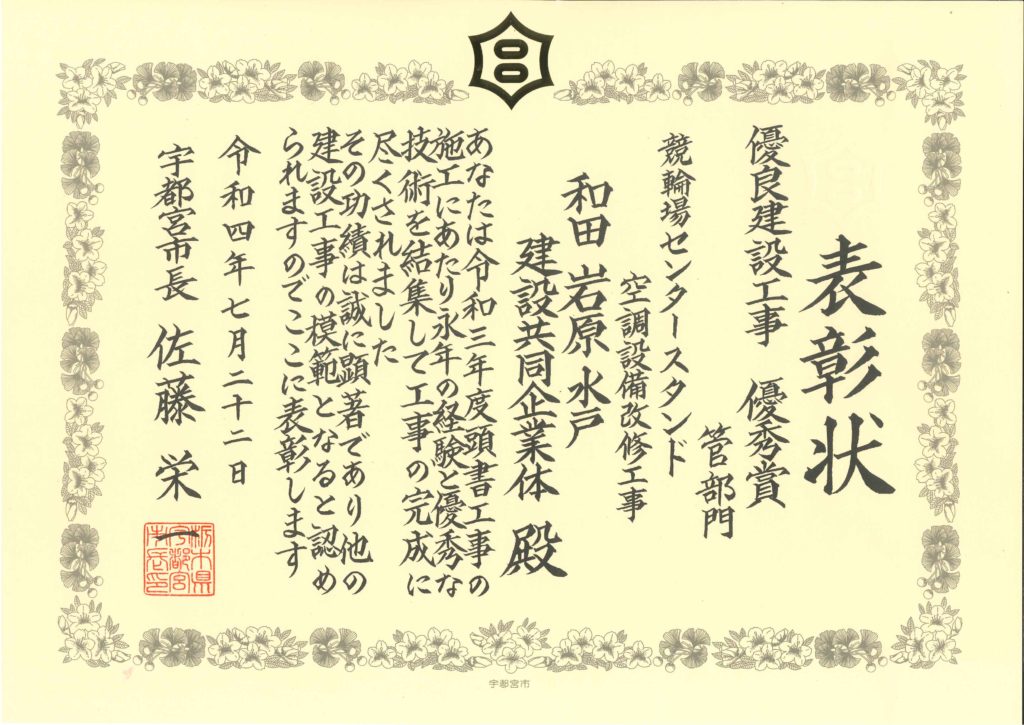 表彰状
優良建設工事 優秀賞
管部門
競輪場センタースタンド
空調設備改修工事
和田 岩原 水戸
建設共同企業体 殿
あなたは令和三年度頭書工事の
施工にあたり永年の経験と優秀な
技術を結集して工事の完成に
尽くされました
その功績は誠に顕著であり他の
建設工事の模範となると認め
られますのでここに表彰します
令和四年七月二十二日
宇都宮市長 佐藤 栄一
栃木県
宇都宮
市長印
宇都宮市